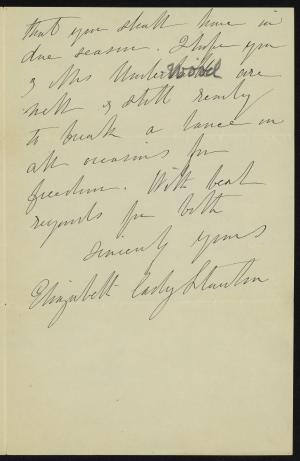 that you shall have in
due season. I hope you
& Mrs Underwood are
well & still ready
to break a lance on
all occasions for
freedom. With best
regards for both
Sincerely yours
Elizabeth Cady Stanton